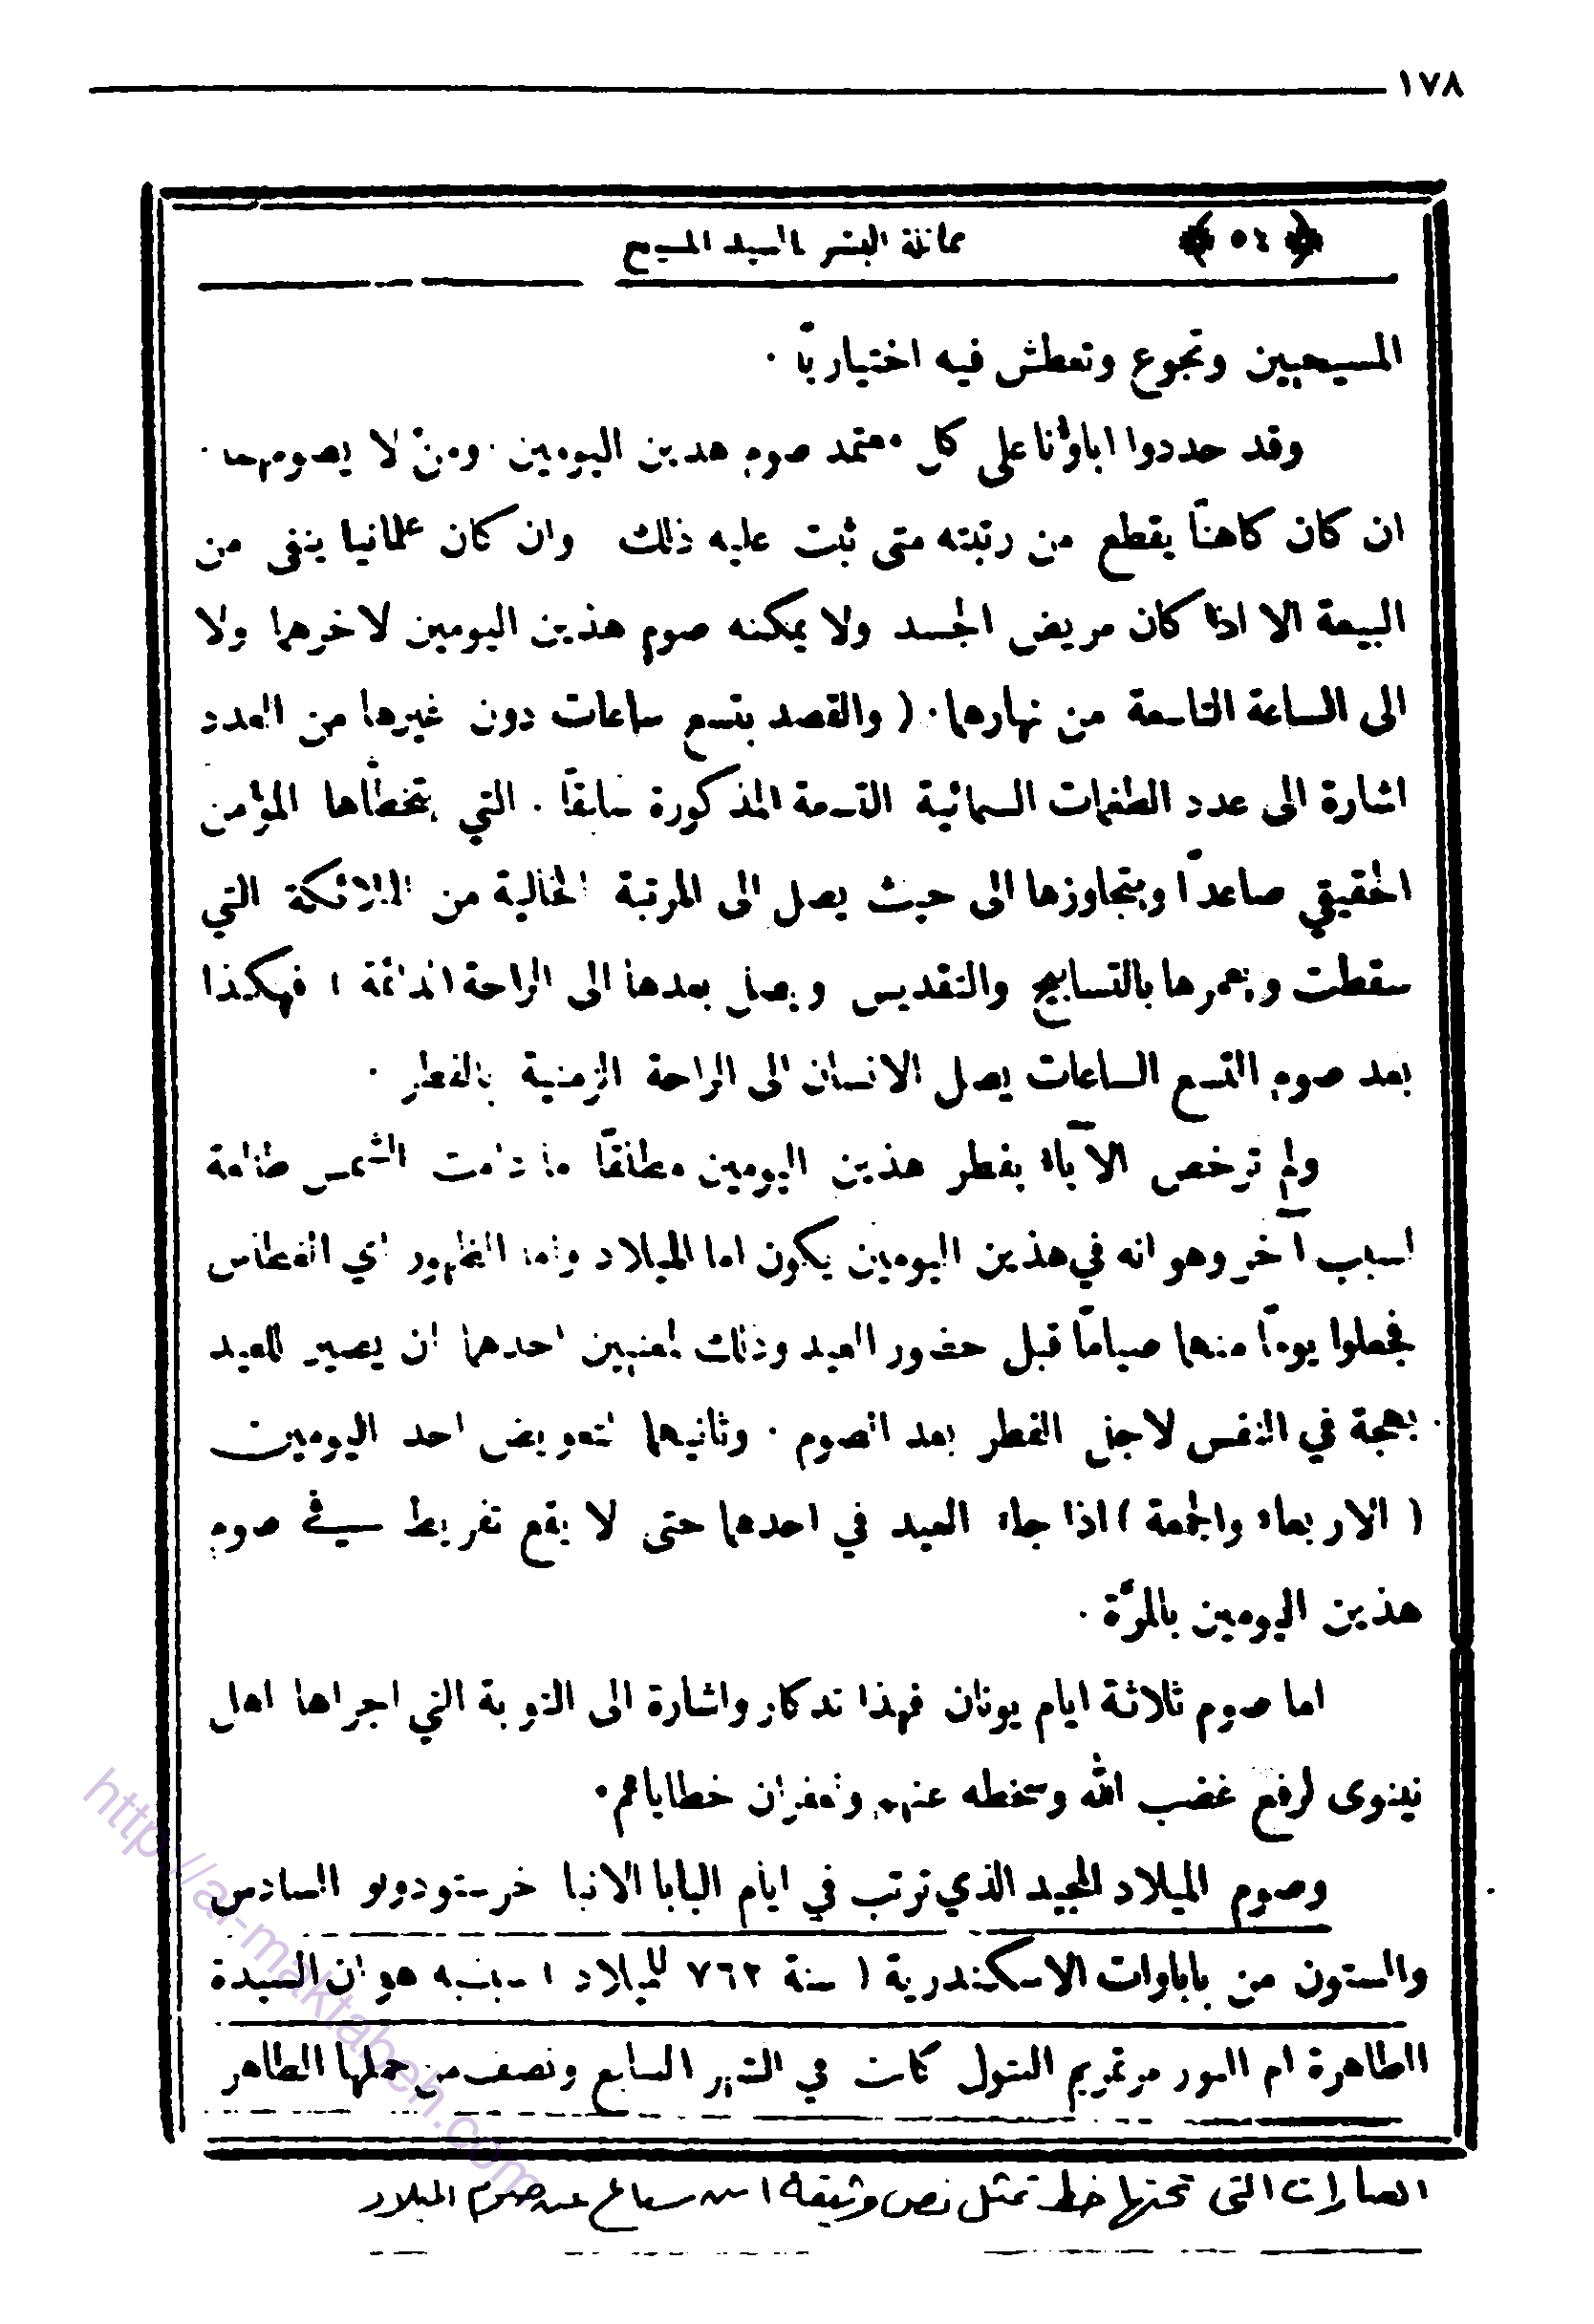 ١٧٨
﴿ ٥٤ ﴾ مماثلة البشر بالسيد المسيح
المسيحيين وتجوع وتعطش فيه اختياريًا ٠
وقد حددوا اباؤنا على كل معتمد صوم هدين اليومين ٠ ومنْ لا يصومهما ٠
ان كان كاهنًا يقطع من رتبته متى ثبت عليه ذلك وان كان علمانيا ينفى من
البيعة الا اذا كان مريض الجسد ولا يمكنه صوم هذين اليومين لاخرهما ولا
الى الساعة التاسعة من نهارهما ٠ ( والقصد بتسع ساعات دون غيرها من العدد
اشارة الى عدد الطغمات السمائية التسعة المذكورة سابقًا ٠ التي يتخطأها المؤمن
الحقيقي صاعدًا ويتجاوزها الى حيث يصل الى المرتبة الخالية من الملائكة التي
سقطت ويعمرها بالتسابيح والتقديس ويصل بعدها الى الراحة الدائمة ) فهكذا
بعد صوم التسع الساعات يصل الانسان الى الراحة الزمنية بالفطر ٠
ولم ترخص الآباء بفطر هذين اليومين مطلقًا ما دامت الشمس طالعة
لسبب آخر وهو انه في هذين اليومين يكون اما الميلاد واما الظهور اي الغطاس
فجعلوا يومًا منهما صيامًا قبل حضور العيد وذلك لمعنيين احدهما ان يصير للعيد
بهجة في النفس لاجل الفطر بعد الصوم ٠ وثانيهما لتعويض احد اليومين
( الاربعاء والجمعة ) اذا جاء العيد في احدهما حتى لا يقع تفريط في صوم
هذين اليومين بالمرَّة ٠
اما صوم ثلاثة ايام يونان فهذا تدكار واشارة الى التوبة التي اجراها اهل
نينوى لرفع غضب الله وسخطه عنهم وغفران خطاياهم ٠
وصوم الميلاد المجيد الذي ترتب في ايام البابا الانبا خرستودولو السادس
والستون من باباوات الاسكندرية ( سنة ٧٦٢ للميلاد ) سببه هو ان السيدة
الطاهرة ام النور مرتمريم البتول كانت في الشهر السابع ونصف من حملها الطاهر
العبارات التى تحتها خط تمثل نص وثيقة ابن سباع عن صوم الميلاد
http://al-maktabeh.com